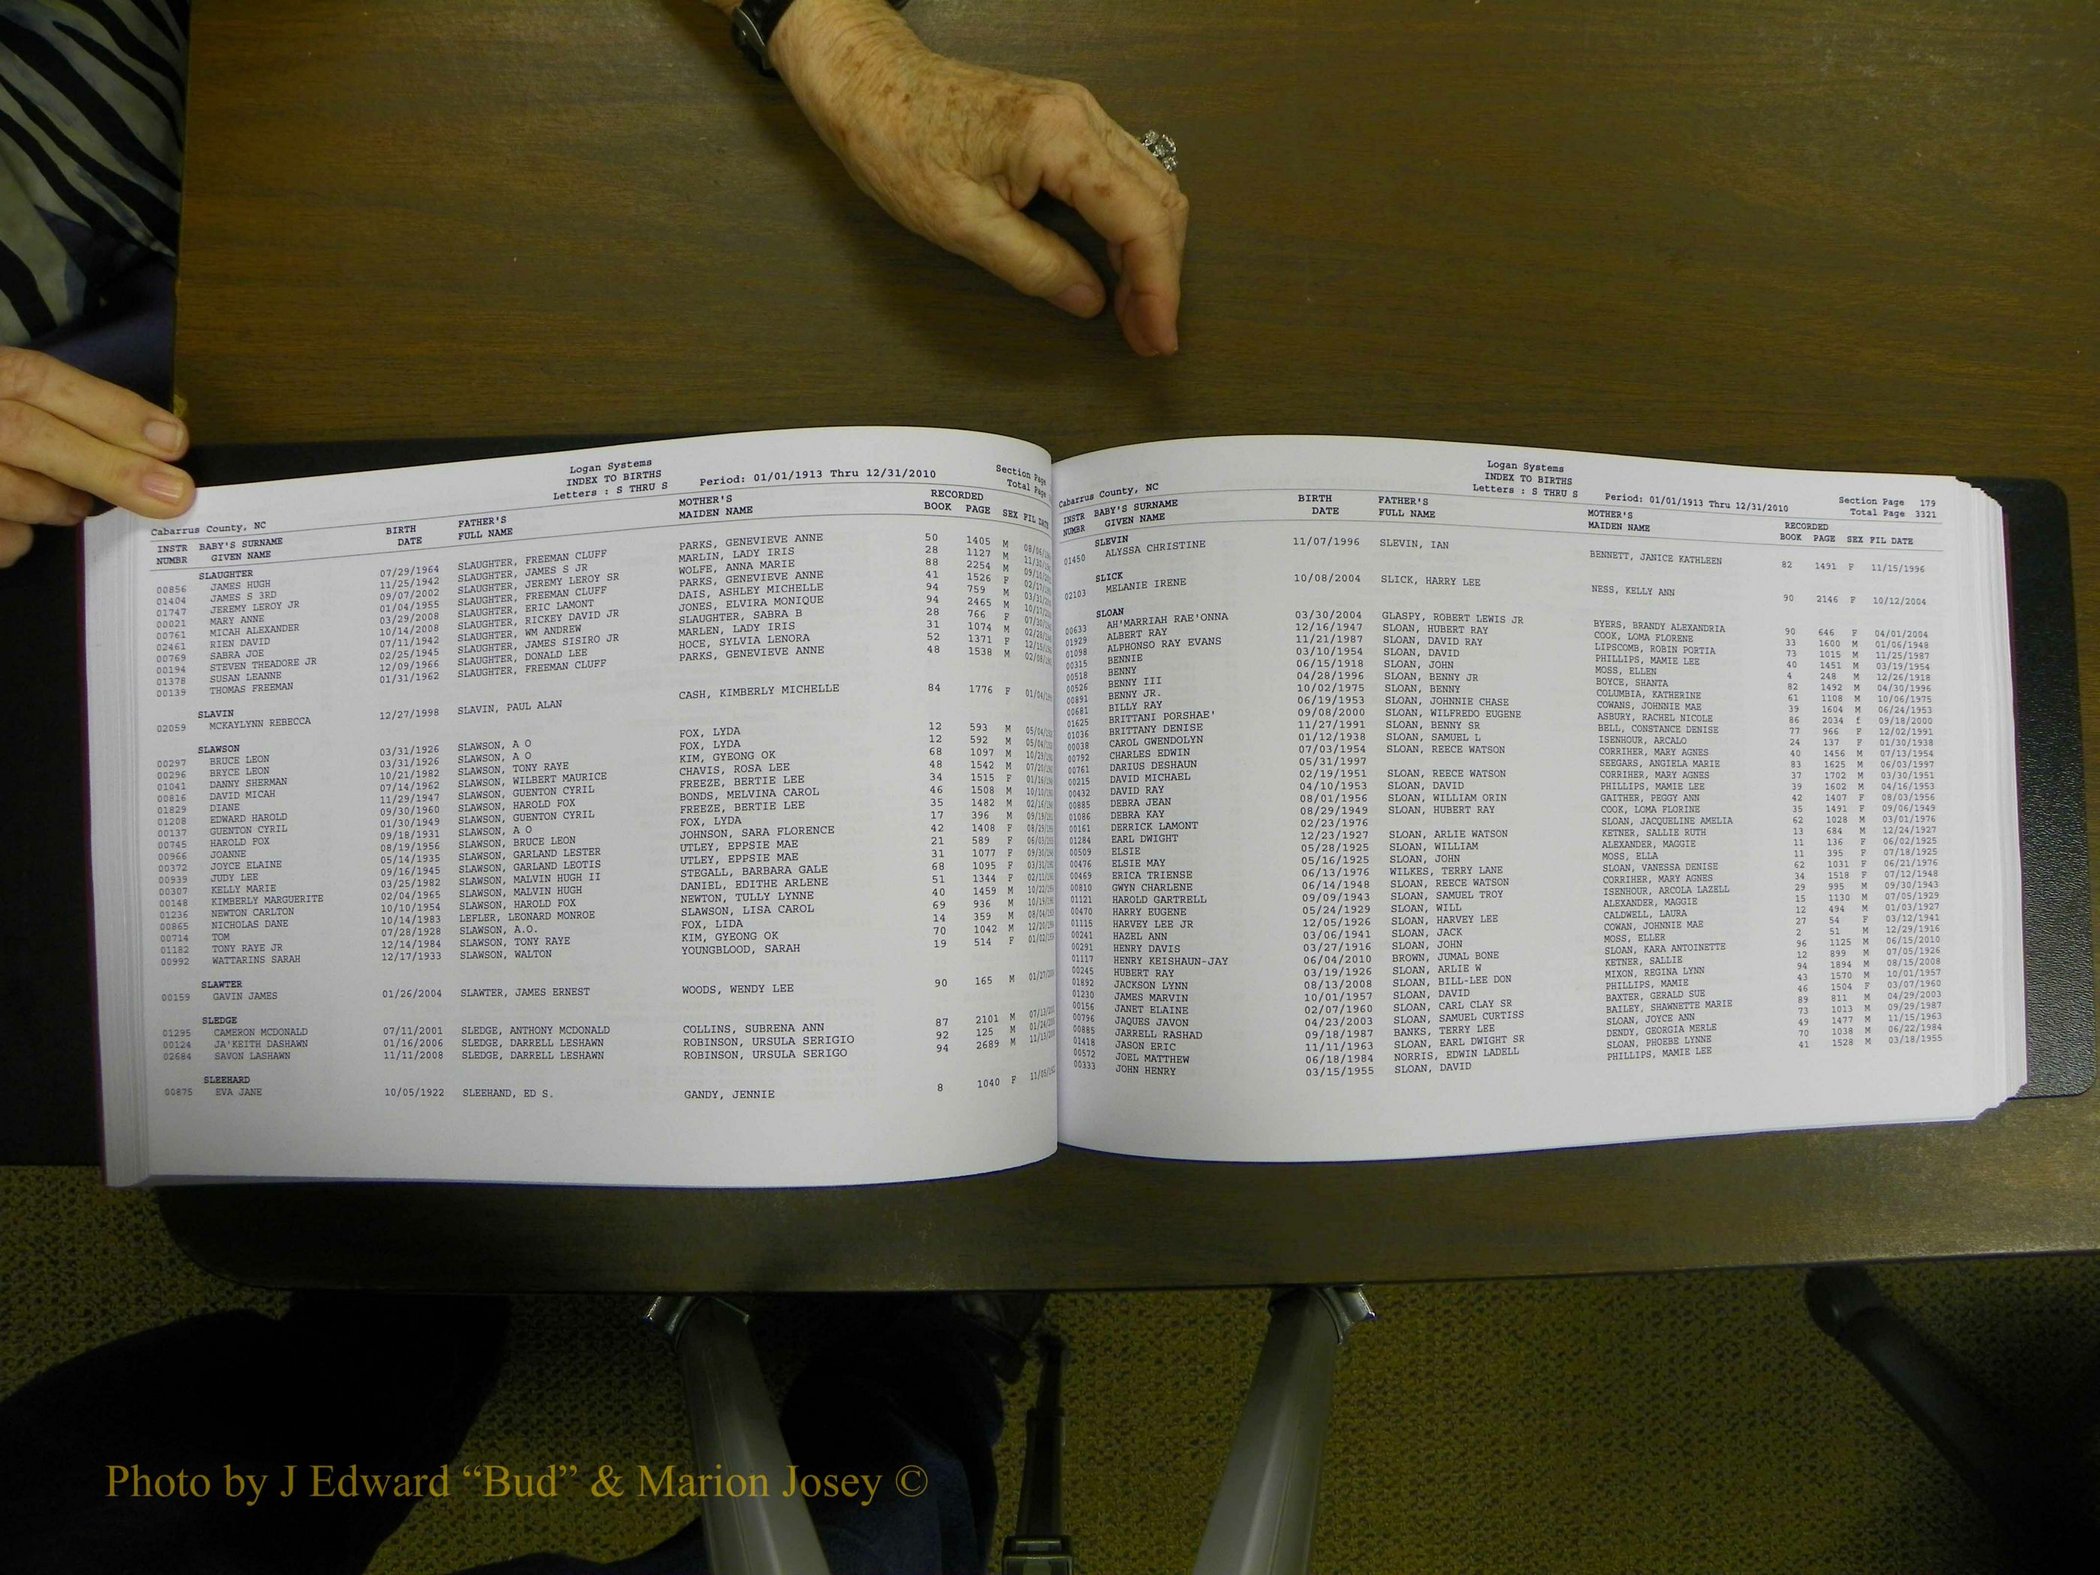 Logan Systems
INDEX TO BIRTHS
Letters : S THRU S Period: 01/01/1913 Thru 12/31/2010 Section Page
Total Page
Cabarrus County, NC
INSTR BABY'S SURNAME BIRTH FATHER'S MOTHER'S RECORDED
NUMBR GIVEN NAME DATE FULL NAME MAIDEN NAME BOOK PAGE SEX FIL DATE
SLAUGHTER
00856 JAMES HUGH 07/29/1964 SLAUGHTER, FREEMAN CLUFF PARKS, GENEVIEVE ANNE 50 1405 M
01404 JAMES S 3RD 11/25/1942 SLAUGHTER, JAMES S JR MARLIN, LADY IRIS 28 1127 M
01747 JEREMY LEROY JR 09/07/2002 SLAUGHTER, JEREMY LEROY SR WOLFE, ANNA MARIE 88 2254 M
00021 MARY ANNE 01/04/1955 SLAUGHTER, FREEMAN CLUFF PARKS, GENEVIEVE ANNE 41 1526 F
00761 MICAH ALEXANDER 03/29/2008 SLAUGHTER, ERIC LAMONT DAIS, ASHLEY MICHELLE 94 759 M
02461 RIEN DAVID 10/14/2008 SLAUGHTER, RICKEY DAVID JR JONES, ELVIRA MONIQUE 94 2465 M
00769 SABRA JOE 07/11/1942 SLAUGHTER, WM ANDREW SLAUGHTER, SABRA B 28 766 F
00194 STEVEN THEADORE JR 02/25/1945 SLAUGHTER, JAMES SISIRO JR MARLEN, LADY IRIS 31 1074 M
01378 SUSAN LEANNE 12/09/1966 SLAUGHTER, DONALD LEE HOCE, SYLVIA LENORA 52 1371 F
00139 THOMAS FREEMAN 01/31/1962 SLAUGHTER, FREEMAN CLUFF PARKS, GENEVIEVE ANNE 48 1538 M
SLAVIN
02059 MCKAYLYNN REBECCA 12/27/1998 SLAVIN, PAUL ALAN CASH, KIMBERLY MICHELLE 84 1776 F
SLAWSON
00297 BRUCE LEON 03/31/1926 SLAWSON, A O FOX, LYDA 12 593 M
00296 BRYCE LEON 03/31/1926 SLAWSON, A O FOX, LYDA 12 592 M
01041 DANNY SHERMAN 10/21/1982 SLAWSON, TONY RAYE KIM, GYEONG OK 68 1097 M
00816 DAVID MICAH 07/14/1962 SLAWSON, WILBERT MAURICE CHAVIS, ROSA LEE 48 1542 M
01829 DIANE 11/29/1947 SLAWSON, GUENTON CYRIL FREEZE, BERTIE LEE 34 1515 F
01208 EDWARD HAROLD 09/30/1960 SLAWSON, HAROLD FOX BONDS, MELVINA CAROL 46 1508 M
00137 GUENTON CYRIL 01/30/1949 SLAWSON, GUENTON CYRIL FREEZE, BERTIE LEE 35 1482 M
00745 HAROLD FOX 09/18/1931 SLAWSON, A O FOX, LYDA 17 396 M
00966 JOANNE 08/19/1956 SLAWSON, BRUCE LEON JOHNSON, SARA FLORENCE 42 1408 F
00372 JOYCE ELAINE 05/14/1935 SLAWSON, GARLAND LESTER UTLEY, EPPSIE MAE 21 589 F
00939 JUDY LEE 09/16/1945 SLAWSON, GARLAND LEOTIS UTLEY, EPPSIE MAE 31 1077 F
00307 KELLY MARIE 03/25/1982 SLAWSON, MALVIN HUGH II STEGALL, BARBARA GALE 68 1095 F
00148 KIMBERLY MARGUERITE 02/04/1965 SLAWSON, MALVIN HUGH DANIEL, EDITHE ARLENE 51 1344 F
01236 NEWTON CARLTON 10/10/1954 SLAWSON, HAROLD FOX NEWTON, TULLY LYNNE 40 1459 M
00865 NICHOLAS DANE 10/14/1983 LEFLER, LEONARD MONROE SLAWSON, LISA CAROL 69 936 M
00714 TOM 07/28/1928 SLAWSON, A.O. FOX, LIDA 14 359 M
01182 TONY RAYE JR 12/14/1984 SLAWSON, TONY RAYE KIM, GYEONG OK 70 1042 M
00992 WATTARINS SARAH 12/17/1933 SLAWSON, WALTON YOUNGBLOOD, SARAH 19 514 F
SLAWTER
00159 GAVIN JAMES 01/26/2004 SLAWTER, JAMES ERNEST WOODS, WENDY LEE 90 165 M
SLEDGE
01295 CAMERON MCDONALD 07/11/2001 SLEDGE, ANTHONY MCDONALD COLLINS, SUBRENA ANN 87 2101 M
00124 JA'KEITH DASHAWN 01/16/2006 SLEDGE, DARRELL LESHAWN ROBINSON, URSULA SERIGIO 92 125 M
02684 SAVON LASHAWN 11/11/2008 SLEDGE, DARRELL LESHAWN ROBINSON, URSULA SERIGO 94 2689 M
SLEEHARD
00875 EVA JANE 10/05/1922 SLEEHAND, ED S. GANDY, JENNIE 8 1040 F
Logan Systems
INDEX TO BIRTHS
Letters : S THRU S Period: 01/01/1913 Thru 12/31/2010 Section Page 179
Total Page 3321
Cabarrus County, NC
INSTR BABY'S SURNAME BIRTH FATHER'S MOTHER'S RECORDED
NUMBR GIVEN NAME DATE FULL NAME MAIDEN NAME BOOK PAGE SEX FIL DATE
SLEVIN
01450 ALYSSA CHRISTINE 11/07/1996 SLEVIN, IAN BENNETT, JANICE KATHLEEN 82 1491 F 11/15/1996
SLICK
02103 MELANIE IRENE 10/08/2004 SLICK, HARRY LEE NESS, KELLY ANN 90 2146 F 10/12/2004
SLOAN
00633 AH'MARRIAH RAE'ONNA 03/30/2004 GLASPY, ROBERT LEWIS JR BYERS, BRANDY ALEXANDRIA 90 646 F 04/01/2004
01929 ALBERT RAY 12/16/1947 SLOAN, HUBERT RAY COOK, LOMA FLORENE 33 1600 M 01/06/1948
01098 ALPHONSO RAY EVANS 11/21/1987 SLOAN, DAVID RAY LIPSCOMB, ROBIN PORTIA 73 1015 M 11/25/1987
00315 BENNIE 03/10/1954 SLOAN, DAVID PHILLIPS, MAMIE LEE 40 1451 M 03/19/1954
00518 BENNY 06/15/1918 SLOAN, JOHN MOSS, ELLEN 4 248 M 12/26/1918
00526 BENNY III 04/28/1996 SLOAN, BENNY JR BOYCE, SHANTA 82 1492 M 04/30/1996
00891 BENNY JR. 10/02/1975 SLOAN, BENNY COLUMBIA, KATHERINE 61 1108 M 10/06/1975
00681 BILLY RAY 06/19/1953 SLOAN, JOHNNIE CHASE COWANS, JOHNNIE MAE 39 1604 M 06/24/1953
01625 BRITTANI PORSHAE' 09/08/2000 SLOAN, WILFREDO EUGENE ASBURY, RACHEL NICOLE 86 2034 f 09/18/2000
01036 BRITTANY DENISE 11/27/1991 SLOAN, BENNY SR BELL, CONSTANCE DENISE 77 966 F 12/02/1991
00038 CAROL GWENDOLYN 01/12/1938 SLOAN, SAMUEL L ISENHOUR, ARCALO 24 137 F 01/30/1938
00792 CHARLES EDWIN 07/03/1954 SLOAN, REECE WATSON CORRIHER, MARY AGNES 40 1456 M 07/13/1954
00761 DARIUS DESHAUN 05/31/1997 SEEGARS, ANGIELA MARIE 83 1625 M 06/03/1997
00215 DAVID MICHAEL 02/19/1951 SLOAN, REECE WATSON CORRIHER, MARY AGNES 37 1702 M 03/30/1951
00432 DAVID RAY 04/10/1953 SLOAN, DAVID PHILLIPS, MAMIE LEE 39 1602 M 04/16/1953
00885 DEBRA JEAN 08/01/1956 SLOAN, WILLIAM ORIN GAITHER, PEGGY ANN 42 1407 F 08/03/1956
01086 DEBRA KAY 08/29/1949 SLOAN, HUBERT RAY COOK, LOMA FLORINE 35 1491 F 09/06/1949
00161 DERRICK LAMONT 02/23/1976 SLOAN, JACQUELINE AMELIA 62 1028 M 03/01/1976
01284 EARL DWIGHT 12/23/1927 SLOAN, ARLIE WATSON KETNER, SALLIE RUTH 13 684 M 12/24/1927
00509 ELSIE 05/28/1925 SLOAN, WILLIAM ALEXANDER, MAGGIE 11 136 F 06/02/1925
00476 ELSIE MAY 05/16/1925 SLOAN, JOHN MOSS, ELLA 11 395 F 07/18/1925
00469 ERICA TRIENSE 06/13/1976 WILKES, TERRY LANE SLOAN, VANESSA DENISE 62 1031 F 06/21/1976
00810 GWYN CHARLENE 06/14/1948 SLOAN, REECE WATSON CORRIHER, MARY AGNES 34 1518 F 07/12/1948
01121 HAROLD GARTRELL 09/09/1943 SLOAN, SAMUEL TROY ISENHOUR, ARCOLA LAZELL 29 995 M 09/30/1943
00470 HARRY EUGENE 05/24/1929 SLOAN, WILL ALEXANDER, MAGGIE 15 1130 M 07/05/1929
01115 HARVEY LEE JR 12/05/1926 SLOAN, HARVEY LEE CALDWELL, LAURA 12 494 M 01/03/1927
00241 HAZEL ANN 03/06/1941 SLOAN, JACK COWAN, JOHNNIE MAE 27 54 F 03/12/1941
00291 HENRY DAVIS 03/27/1916 SLOAN, JOHN MOSS, ELLER 2 51 M 12/29/1916
01117 HENRY KEISHAUN-JAY 06/04/2010 BROWN, JUMAL BONE SLOAN, KARA ANTOINETTE 96 1125 M 06/15/2010
00245 HUBERT RAY 03/19/1926 SLOAN, ARLIE W KETNER, SALLIE 12 899 M 07/05/1926
01892 JACKSON LYNN 08/13/2008 SLOAN, BILL-LEE DON MIXON, REGINA LYNN 94 1894 M 08/15/2008
01230 JAMES MARVIN 10/01/1957 SLOAN, DAVID PHILLIPS, MAMIE 43 1570 M 10/01/1957
00156 JANET ELAINE 02/07/1960 SLOAN, CARL CLAY SR BAXTER, GERALD SUE 46 1504 F 03/07/1960
00796 JAQUES JAVON 04/23/2003 SLOAN, SAMUEL CURTISS BAILEY, SHAWNETTE MARIE 89 811 M 04/29/2003
00885 JARRELL RASHAD 09/18/1987 BANKS, TERRY LEE SLOAN, JOYCE ANN 73 1013 M 09/29/1987
01418 JASON ERIC 11/11/1963 SLOAN, EARL DWIGHT SR DENDY, GEORGIA MERLE 49 1477 M 11/15/1963
00572 JOEL MATTHEW 06/18/1984 NORRIS, EDWIN LADELL SLOAN, PHOEBE LYNNE 70 1038 M 06/22/1984
00333 JOHN HENRY 03/15/1955 SLOAN, DAVID PHILLIPS, MAMIE LEE 41 1528 M 03/18/1955
Photo by J Edward “Bud” & Marion Josey ©